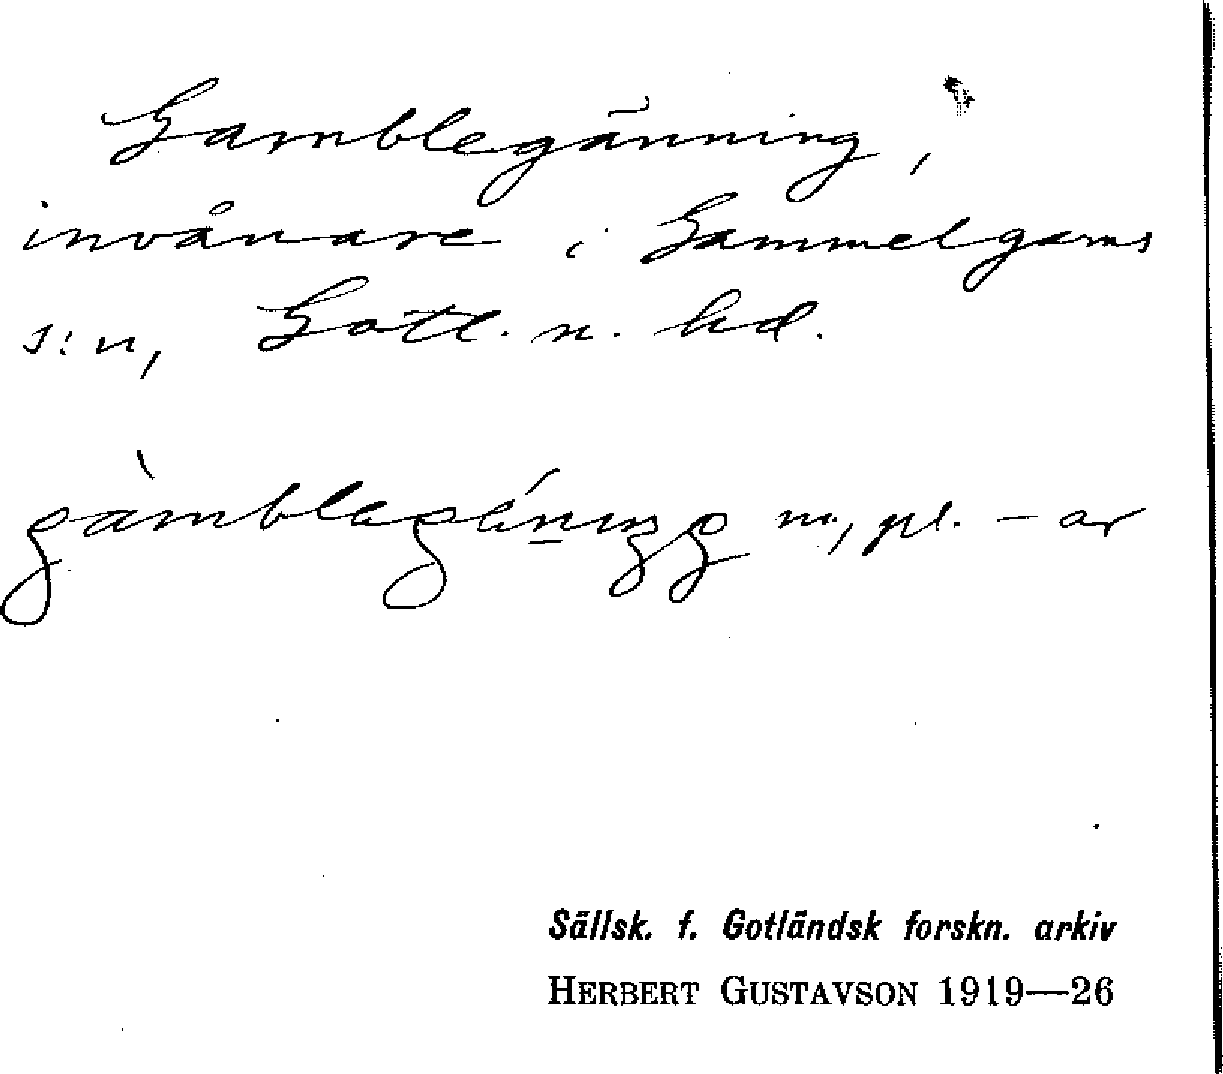 Gamblegänning,
invånare i Gammelgarns
s:n, Gotl. n. hd.
gàmblagéningg m., pl. -ar
Sällsk. f. Gotländsk forskn. arkiv
HERBERT GUSTAVSON 1919—26